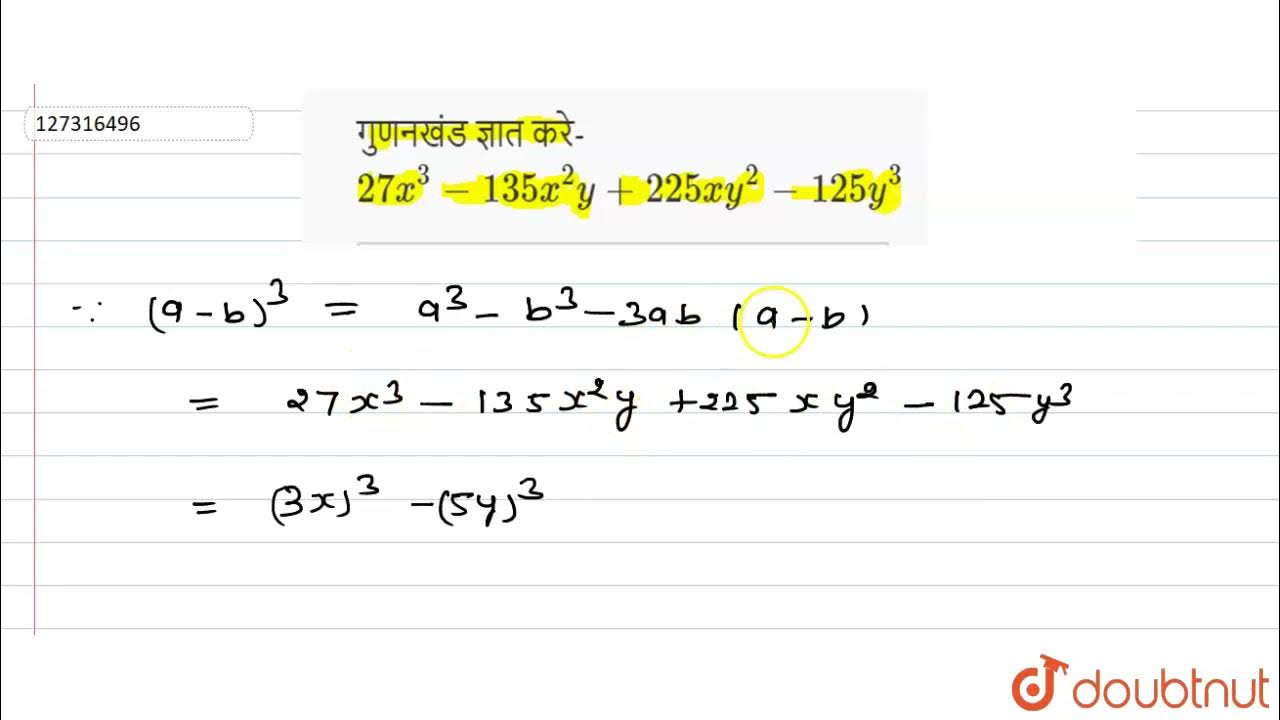 127316496
गुणनखंड ज्ञात करे-
27x³ − 135x²y + 225xy² − 125y³
∵ (a-b)³ = a³ - b³ - 3ab (a-b)
= 27x³ - 135x²y + 225xy² - 125y³
= (3x)³ - (5y)³
doubtnut